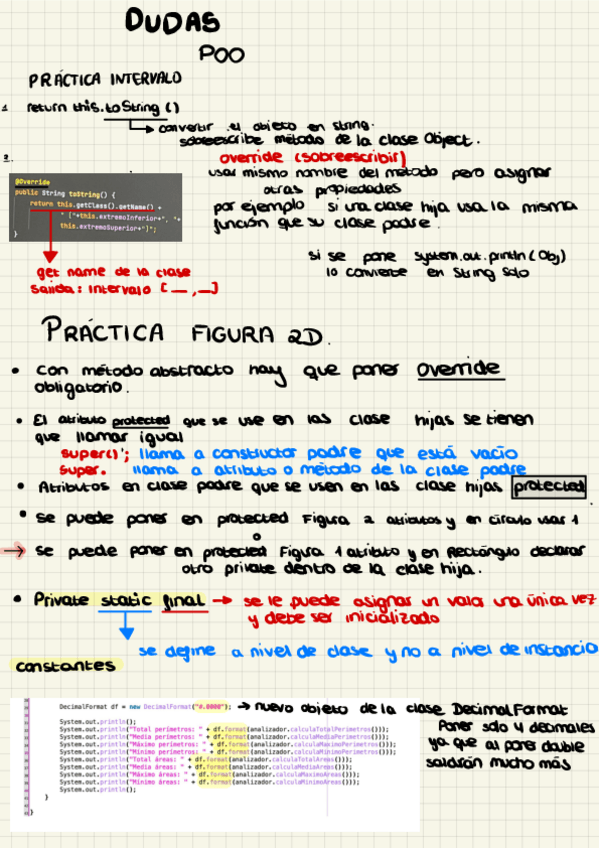 DUDAS
POO
PRÁCTICA INTERVALO
1. return this.toString ()
convertir el objeto en string.
sobreescribe método de la clase Object.
2.
override (sobreescribir)
usar mismo nombre del método pero asignar
otras propiedades
por ejemplo si una clase hija usa la misma
función que su clase padre.
@Override
public String toString() {
return this.getClass().getName() +
" ["+this.extremoInferior+", "+
this.extremoSuperior+"]";
}
si se pone system.out.println (Obj)
lo convierte en String solo
get name de la clase
salida: Intervalo [__,__]
PRÁCTICA FIGURA 2D.
• Con método abstracto hay que poner override
obligatorio.
• El atributo protected que se use en las clase hijas se tienen
que llamar igual
super()'; llama a constructor padre que está vacío
super. llama a atributo o método de la clase padre
• Atributos en clase padre que se usen en las clase hijas protected.
• se puede poner en protected Figura 2 atributos y en círculo usar 1
o
→ se puede poner en protected Figura 1 atributo y en Rectángulo declarar
otro private dentro de la clase hija.
• Private static final → se le puede asignar un valor una única vez
y debe ser inicializado
se define a nivel de clase y no a nivel de instancia
constantes
DecimalFormat df = new DecimalFormat("#.0000"); → nuevo objeto de la clase DecimalFormat
Poner solo 4 decimales
ya que al poner double
saldrán mucho más
System.out.println();
System.out.println("Total perímetros: " + df.format(analizador.calculaTotalPerimetros()));
System.out.println("Media perímetros: " + df.format(analizador.calculaMediaPerimetros()));
System.out.println("Máximo perímetros: " + df.format(analizador.calculaMaximoPerimetros()));
System.out.println("Mínimo perímetros: " + df.format(analizador.calculaMinimoPerimetros()));
System.out.println("Total áreas: " + df.format(analizador.calculaTotalAreas()));
System.out.println("Media áreas: " + df.format(analizador.calculaMediaAreas()));
System.out.println("Máximo áreas: " + df.format(analizador.calculaMaximoAreas()));
System.out.println("Mínimo áreas: " + df.format(analizador.calculaMinimoAreas()));
System.out.println();
}
}